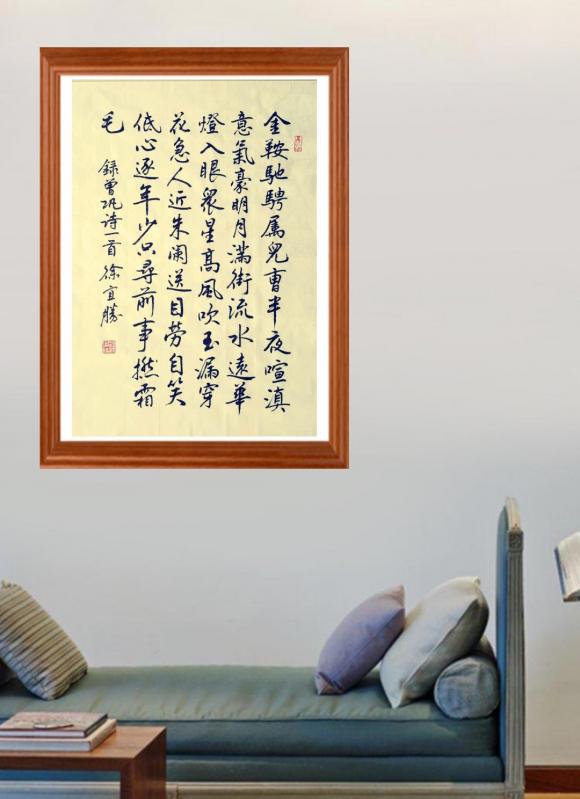 金鞍馳騁属兒曹半夜喧滇
意氣豪明月滿街流水遠華
燈入眼衆星高風吹玉漏穿
花急人近朱闌送目劳自笑
低心逐年少只尋前事撚霜
毛
録曾巩诗一首徐宜勝